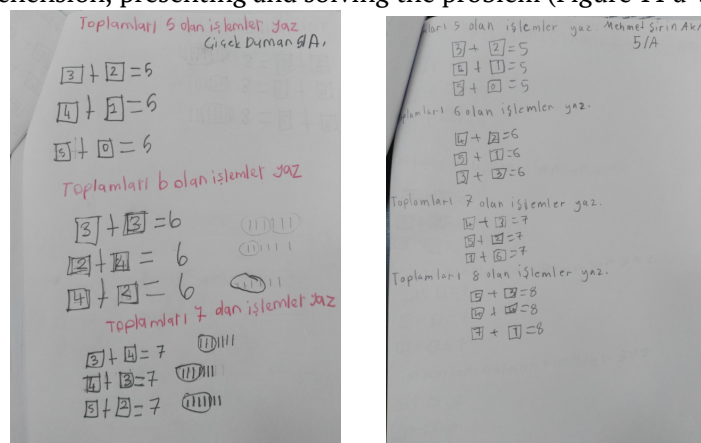 presenting and solving the problem (Figure
Toplamları 5 olan işlemler yaz
Çiçek Duman 5/A.
3 + 2 = 5
4 + 1 = 5
5 + 0 = 5
Toplamları 6 olan işlemler yaz
3 + 3 = 6
2 + 4 = 6
4 + 2 = 6
Toplamları 7 dan işlemler yaz
3 + 4 = 7
4 + 3 = 7
5 + 2 = 7
5 olan işlemler yaz. Mehmed Şirin
5/A
3 + 2 = 5
4 + 1 = 5
5 + 0 = 5
6 olan işlemler yaz.
4 + 2 = 6
5 + 1 = 6
3 + 3 = 6
Toplamları 7 olan işlemler yaz.
4 + 3 = 7
5 + 2 = 7
1 + 6 = 7
Toplamları 8 olan işlemler yaz.
5 + 3 = 8
= 8
7 + 1 = 8